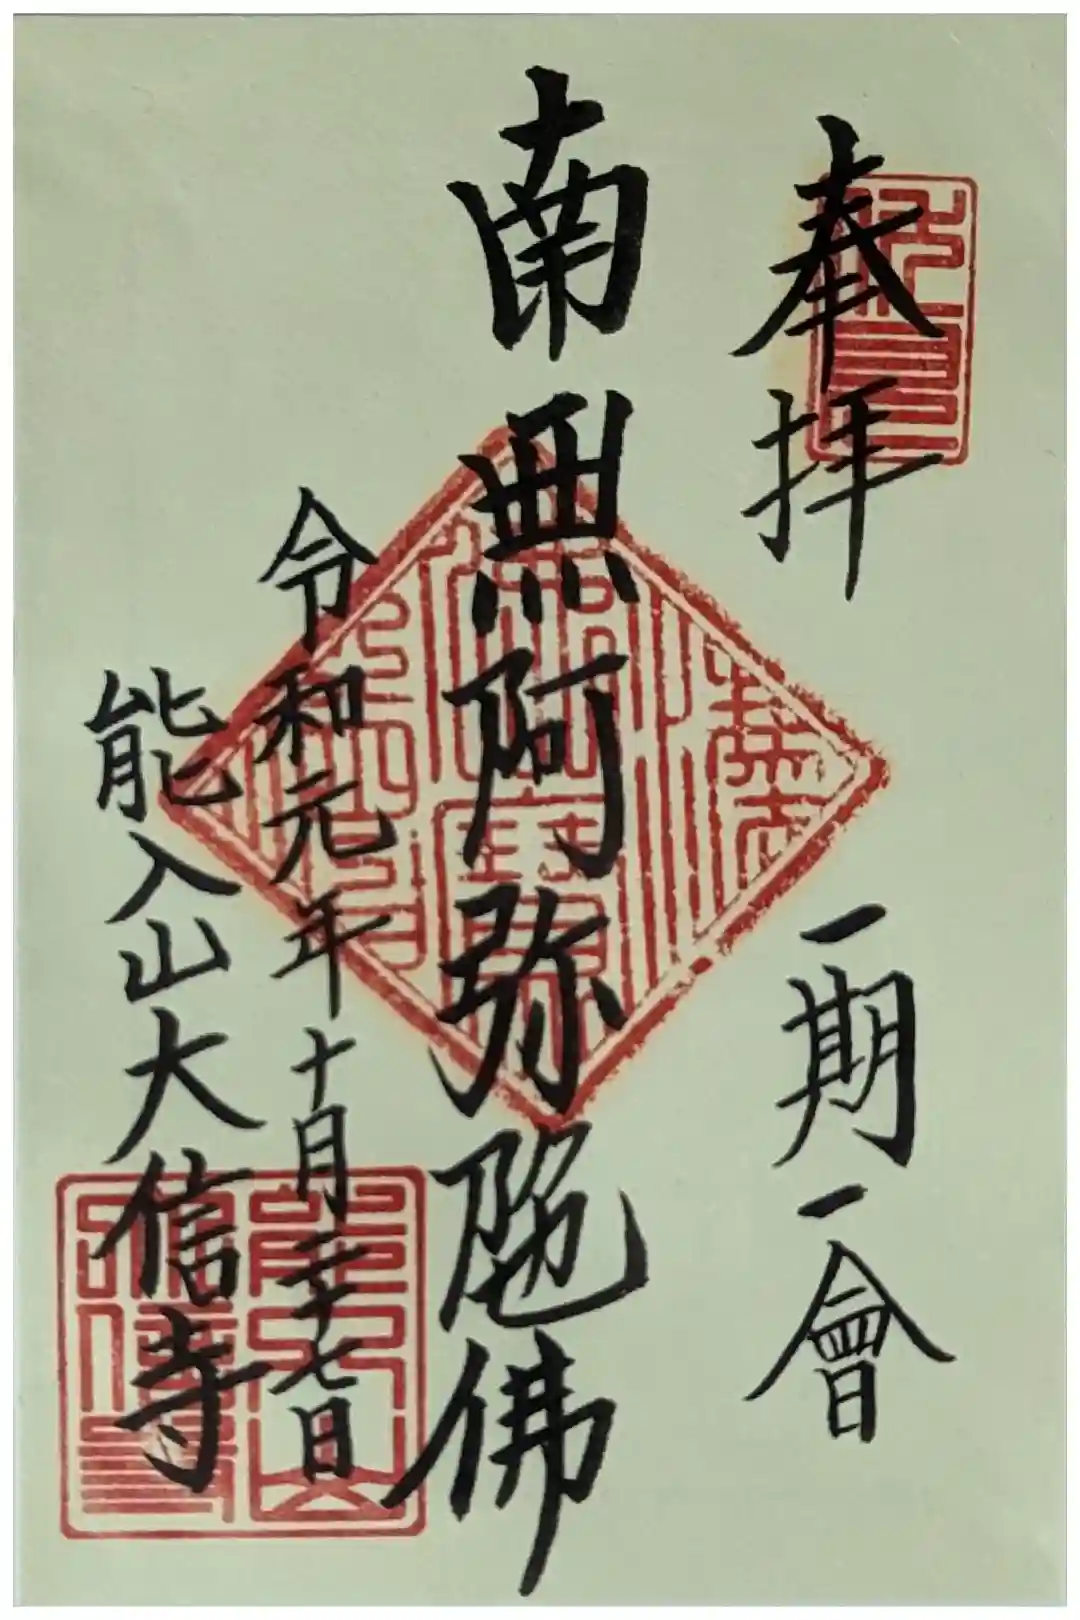 奉拝
一期一會
南無阿弥陀佛
令和元年十月二十七日
能入山大信寺